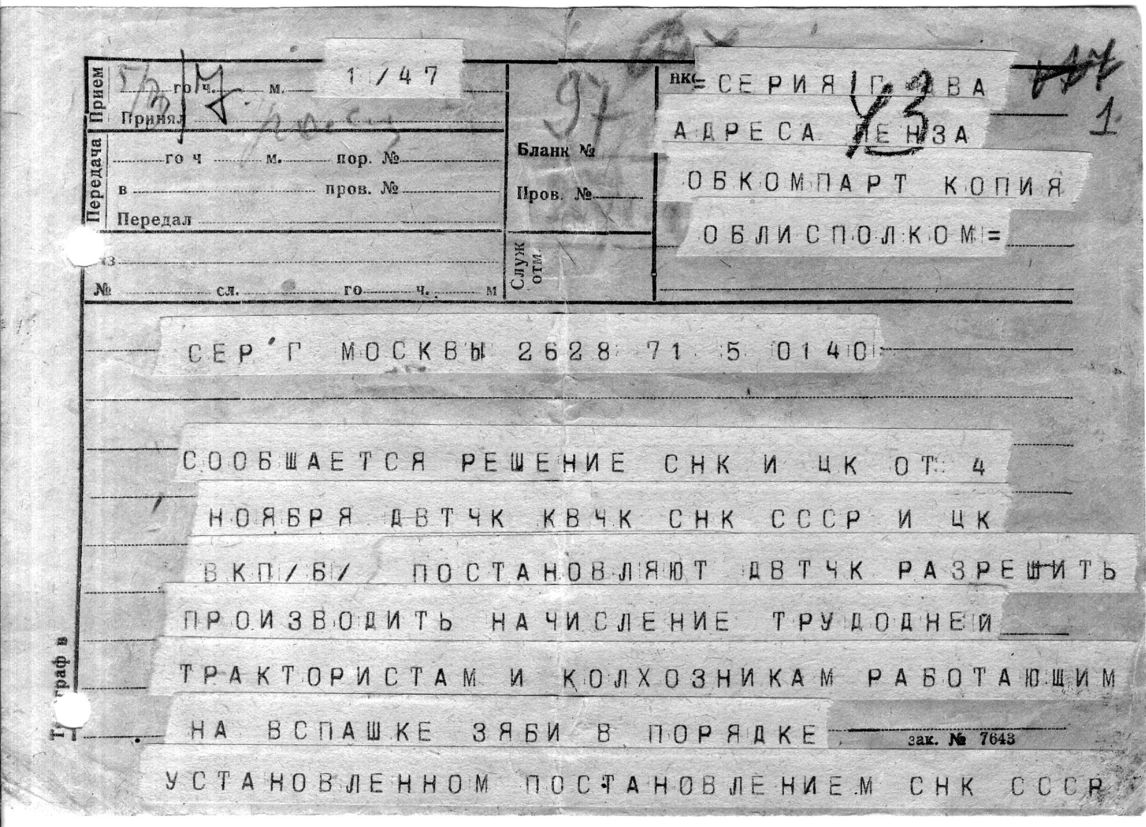 1/47
Прием
го ч. м.
Принял
Передача
го ч м. пор. №
в пров. №
Передал
№ сл. го ч. м
97
Бланк №
Пров. №
Служ
отм.
43
1.
=СЕРИЯ Г ДВА
АДРЕСА ПЕНЗА
ОБКОМПАРТ КОПИЯ
ОБЛИСПОЛКОМ=
СЕР Г МОСКВЫ 2628 71 5 0140
СООБШАЕТСЯ РЕШЕНИЕ СНК И ЦК ОТ 4
НОЯБРЯ ДВТЧК КВЧК СНК СССР И ЦК
ВКП/Б/ ПОСТАНОВЛЯЮТ ДВТЧК РАЗРЕШИТЬ
ПРОИЗВОДИТЬ НАЧИСЛЕНИЕ ТРУДОДНЕЙ
ТРАКТОРИСТАМ И КОЛХОЗНИКАМ РАБОТАЮЩИМ
НА ВСПАШКЕ ЗЯБИ В ПОРЯДКЕ
зак. № 7643
УСТАНОВЛЕННОМ ПОСТАНОВЛЕНИЕМ СНК СССР